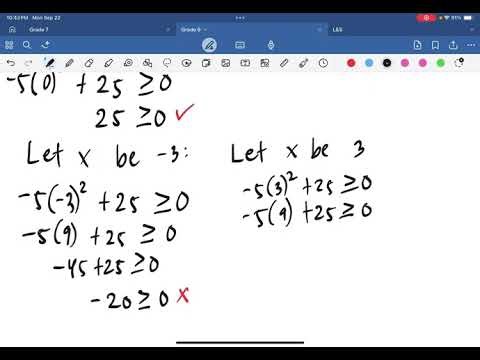 10:43 PM Mon Sep 22
Grade 7
Grade 6
L&S
-5(0) + 25 ≥ 0
25 ≥ 0 ✓
Let x be -3:
-5(-3)² + 25 ≥ 0
-5(9) + 25 ≥ 0
-45 + 25 ≥ 0
-20 ≥ 0 ✗
Let x be 3
-5(3)² + 25 ≥ 0
-5(9) + 25 ≥ 0